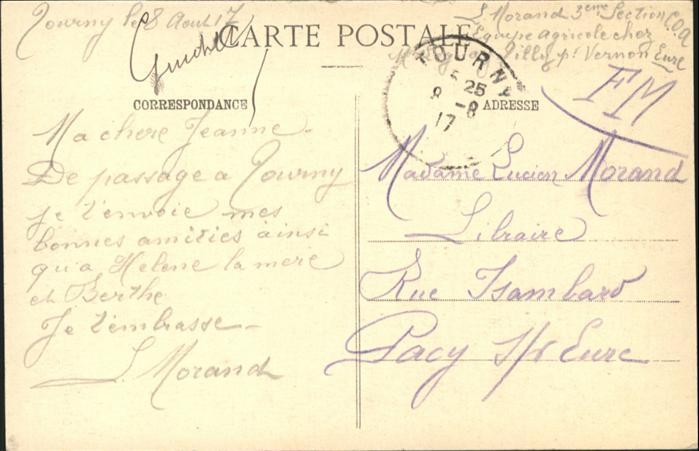 Tourny le 8 Aout 17
L Morand 3eme Section C.O.A
Equipe agricole chez
Tilly pr Vernon Eure
Guichet
CARTE POSTALE
TOURNY
25
8 -8
17
FM
CORRESPONDANCE
ADRESSE
Ma chere Jeanne -
De passage a Tourny
je t'envoie mes
bonnes amitiés ainsi
qu'a Helene la mere
et Berthe
Je t'embrasse -
L. Morand
Madame Lucien Morand
Libraire
Rue Isambard
Pacy s/r Eure